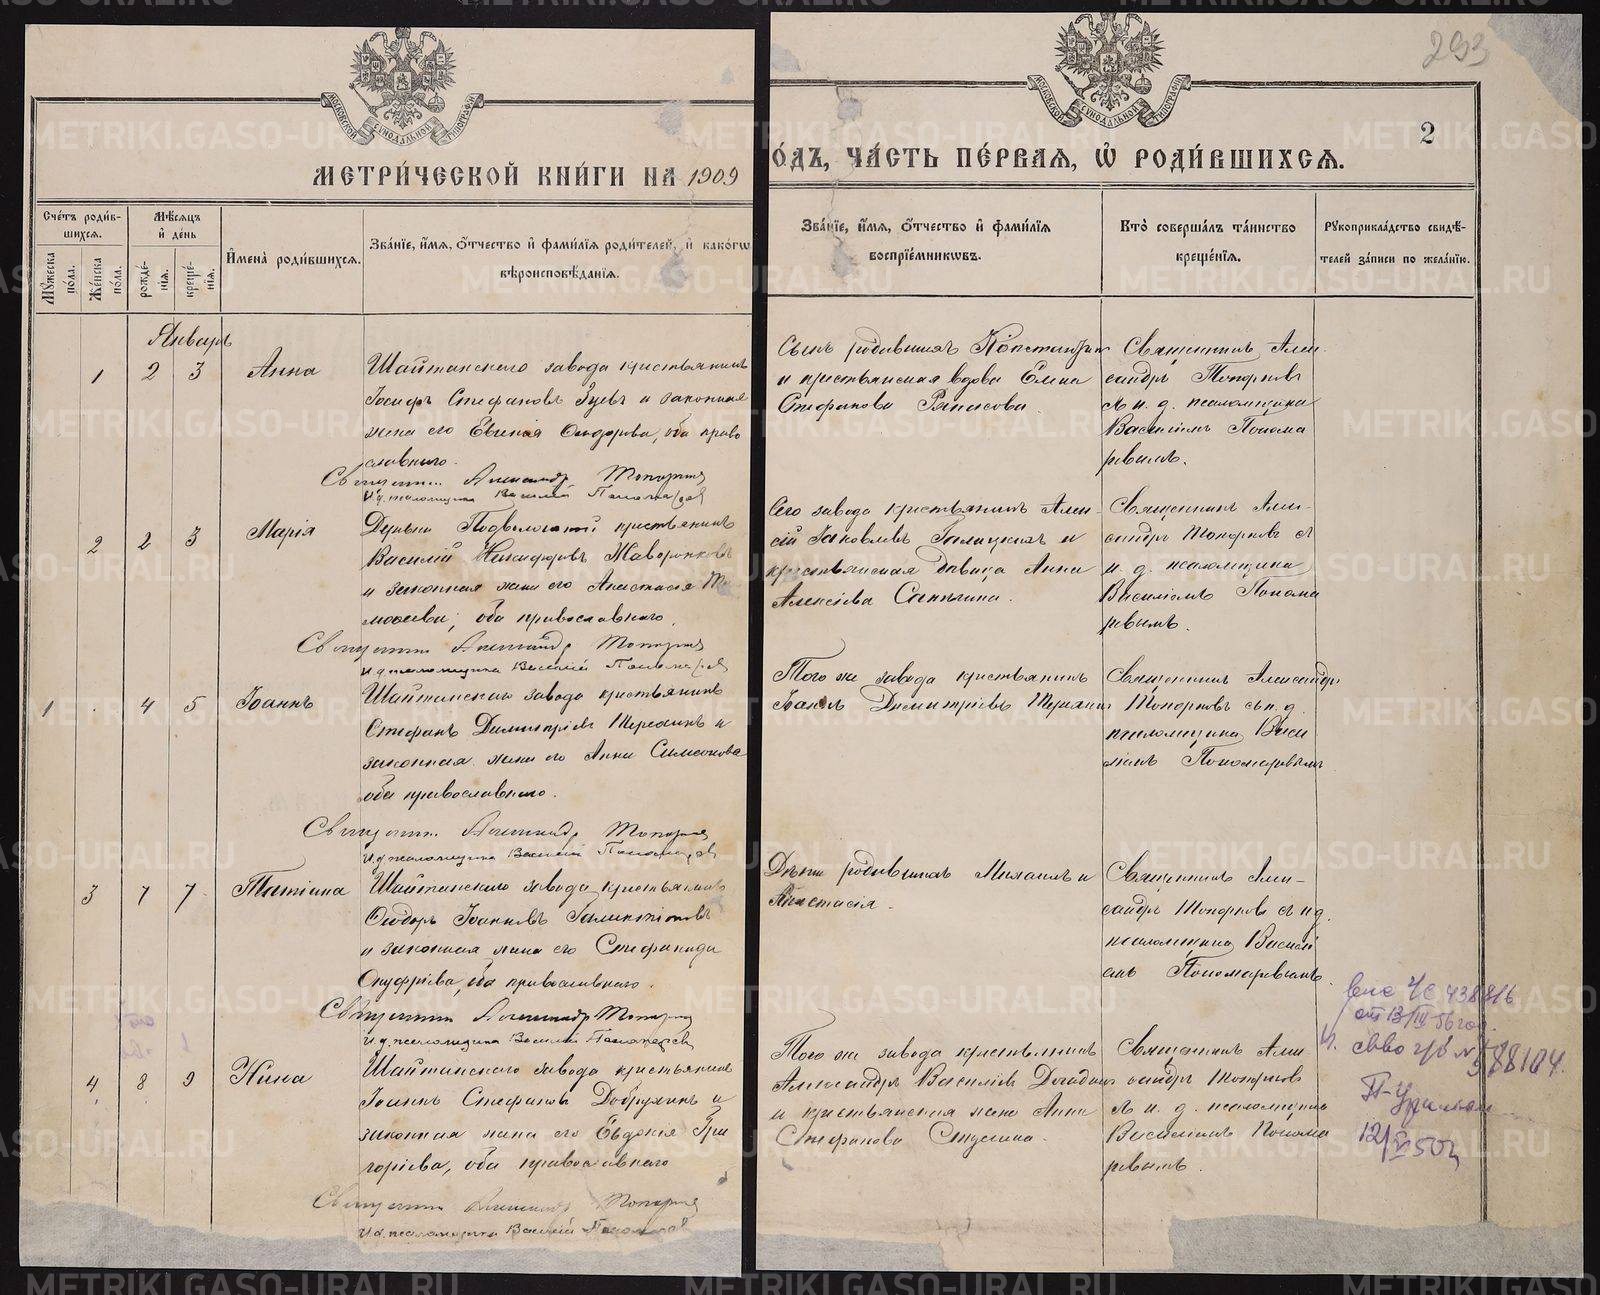 293
2
МОСКОВСКОЙ СѴНОДАЛЬНОЙ ТИПОГРАФІИ
МОСКОВСКОЙ СѴНОДАЛЬНОЙ ТИПОГРАФІИ
МЕТРИ́ЧЕСКОЙ КНИ́ГИ НА 1909
О́ДЪ, ЧА́СТЬ ПЕ́РВАЯ, Ѡ҆ РОДИ́ВШИХСЯ.
Сче́тъ роди́в-
шихся.
Мѣ́сяцъ
и҆ де́нь
Мꙋ́жеска по́ла.
Же́нска по́ла.
рожде́-
нїя.
креще́-
нїя.
И҆мена̀ роди́вшихся.
Зва́нїе, и҆́мя, ѻ҆́тчество и҆ фами́лїя роди́телей, и҆ како́гѡ
вѣроисповѣ́данїя.
Зва́нїе, и҆́мя, ѻ҆́тчество и҆ фами́лїя
воспрїе́мникѡвъ.
Кто̀ соверша́лъ та́инство
креще́нїя.
Рꙋкоприкла́дство свидѣ́-
телей за́писи по жела́нїю.
Январь
1 2 3 Анна
Шайтанскаго завода крестьянинъ
Іосифъ Стефановъ Зуевъ и законная
жена его Евгенія Ѳеодорова, оба право
славнаго.
Священникъ Александр Топорков
И.д. псаломщика Василий Пономарев
Сынъ родившихъ Константинъ
и крестьянская вдова Елена
Стефанова
Священникъ Алек
сандръ Топорковъ
съ и. д. псаломщика
Василіемъ Понома
ревымъ.
2 2 3 Марія
Деревни Подволошной крестьянинъ
Василій Никифоровъ Жаворонковъ
и законная жена его Анастасія Ти
моѳеева, оба православнаго.
Священникъ Александр Топорков
И.д. псаломщика Василий Пономарев
Сего завода крестьянинъ Алек-
сій Іаковлевъ Галицкихъ и
крестьянская дѣвица Анна
Алексіева
Священникъ Алек-
сандръ Топорковъ съ
и. д. псаломщика
Василіемъ Понома
ревымъ.
1 4 5 Іоаннъ
Шайтанскаго завода крестьянинъ
Стефанъ Димитріевъ Терехинъ и
законная жена его Анна Симеонова
оба православнаго.
Священникъ Александр Топорков
И.д. псаломщика Василий Пономарев
Того же завода крестьянинъ
Іоаннъ Димитріевъ Терехинъ
Священникъ Александръ
Топорковъ съ и. д.
псаломщика Васи
ліемъ Пономаревымъ
3 7 7 Татіана
Шайтанскаго завода крестьянинъ
Ѳеодоръ Іоанновъ Галактіоновъ
и законная жена его Стефанида
Онуфріева, оба православнаго.
Священникъ Александр Топорков
И.д. псаломщика Василий Пономарев
Дѣти родившихъ Михаилъ и
Анастасія.
Священникъ Алек-
сандръ Топорковъ съ и д.
псаломщика Василі
емъ Пономаревымъ.
4 8 9 Нина
Шайтанскаго завода крестьянинъ
Іоаннъ Стефановъ Добрынинъ и
законная жена его Евдокія Гри
горіева, оба православнаго
Священникъ Александр Топорков
И.д. псаломщика Василий Пономарев
Того же завода крестьянинъ
Александръ Василіевъ
и крестьянская жена Анна
Стефанова
Священникъ Алек
сандръ Топорковъ
съ и. д. псаломщика
Василіемъ Понома
ревымъ.
438816
от 13/III 56 год.
св-во
588104.
П-Уральск
12/V 50 г.
METRIKI.GASO-URAL.RU